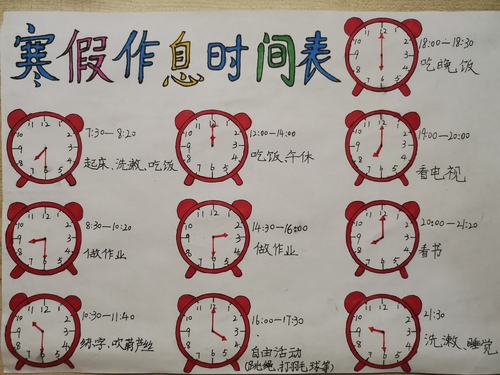 寒假作息时间表
18:00-18:30
吃晚饭
7:30-8:20
起床、洗漱、吃饭
12:00-14:00
吃饭、午休
19:00-20:00
看电视
8:30-10:20
做作业
14:30-16:00
做作业
20:00-21:20
看书
10:30-11:40
练字、吹葫芦丝
16:00-17:30
自由活动
(跳绳、打羽毛球等)
21:30
洗漱、睡觉